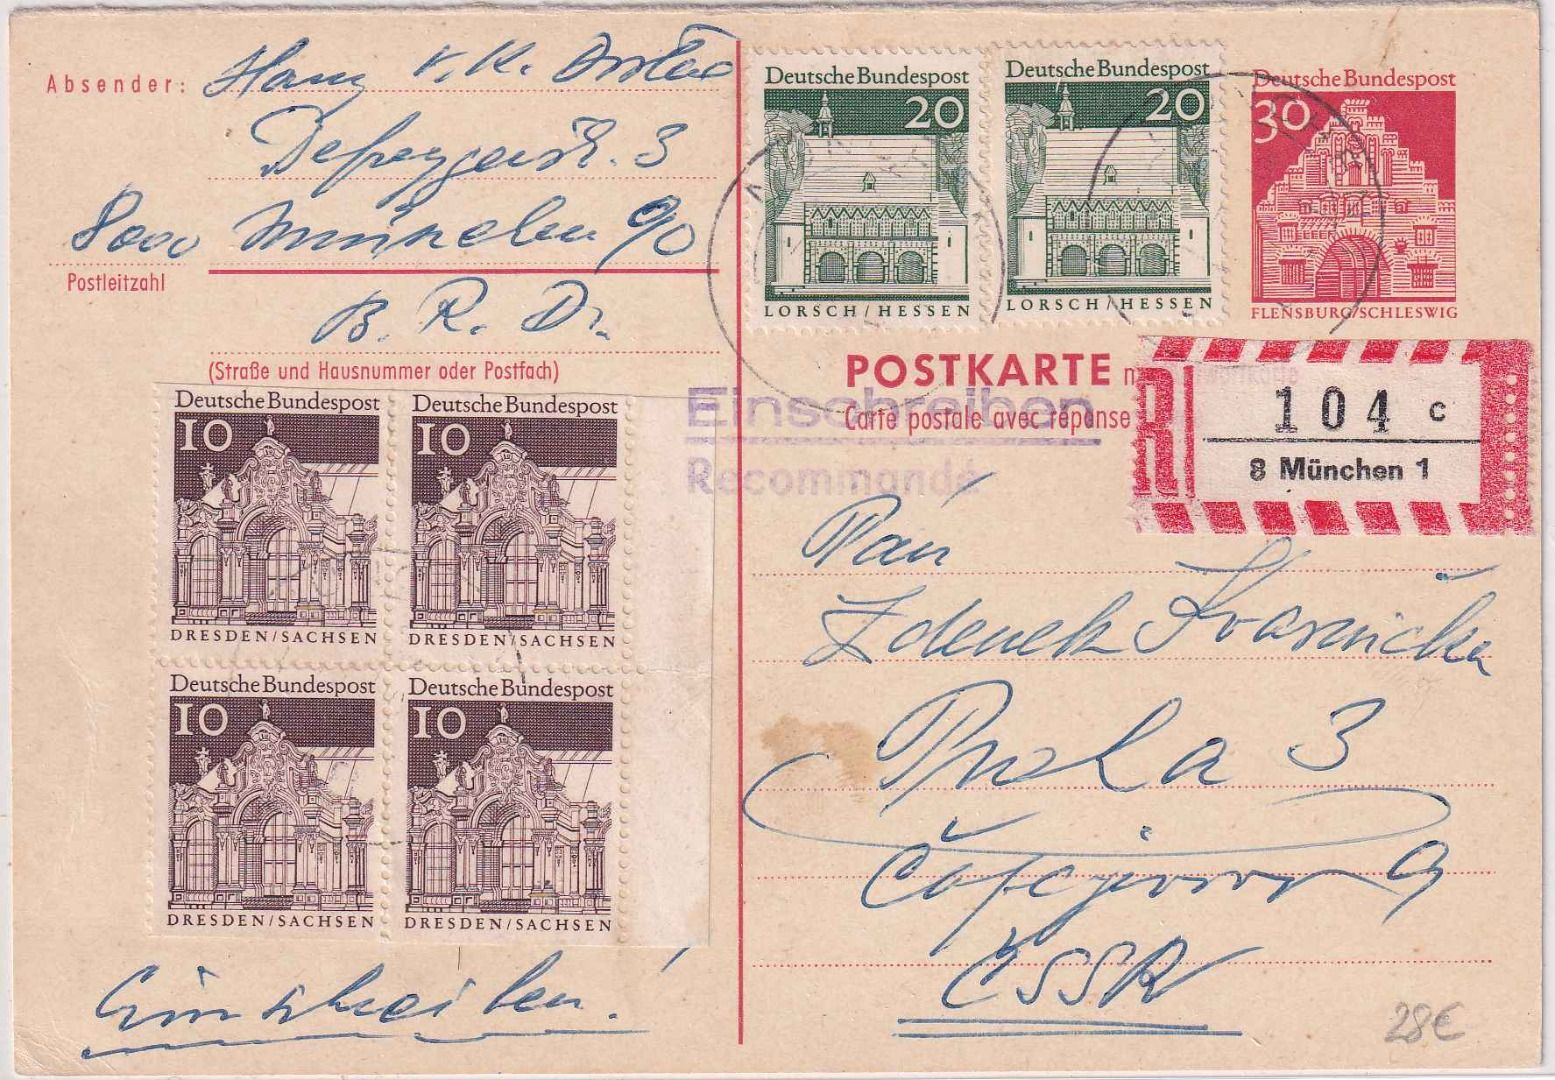 Absender: Hans v. K.
3
8000 München 90
Postleitzahl
B. R. D.
(Straße und Hausnummer oder Postfach)
Deutsche Bundespost
20
LORSCH/HESSEN
Deutsche Bundespost
20
LORSCH/HESSEN
Deutsche Bundespost
30
FLENSBURG/SCHLESWIG
POSTKARTE
Carte postale avec réponse
Einschreiben
Recommandé
R
104 c
8 München 1
Deutsche Bundespost
10
DRESDEN/SACHSEN
Deutsche Bundespost
10
DRESDEN/SACHSEN
Deutsche Bundespost
10
DRESDEN/SACHSEN
Deutsche Bundespost
10
DRESDEN/SACHSEN
Einschreiben!
Pan
Zdenek Kvasnička
Praha 3
9
ČSSR
28€